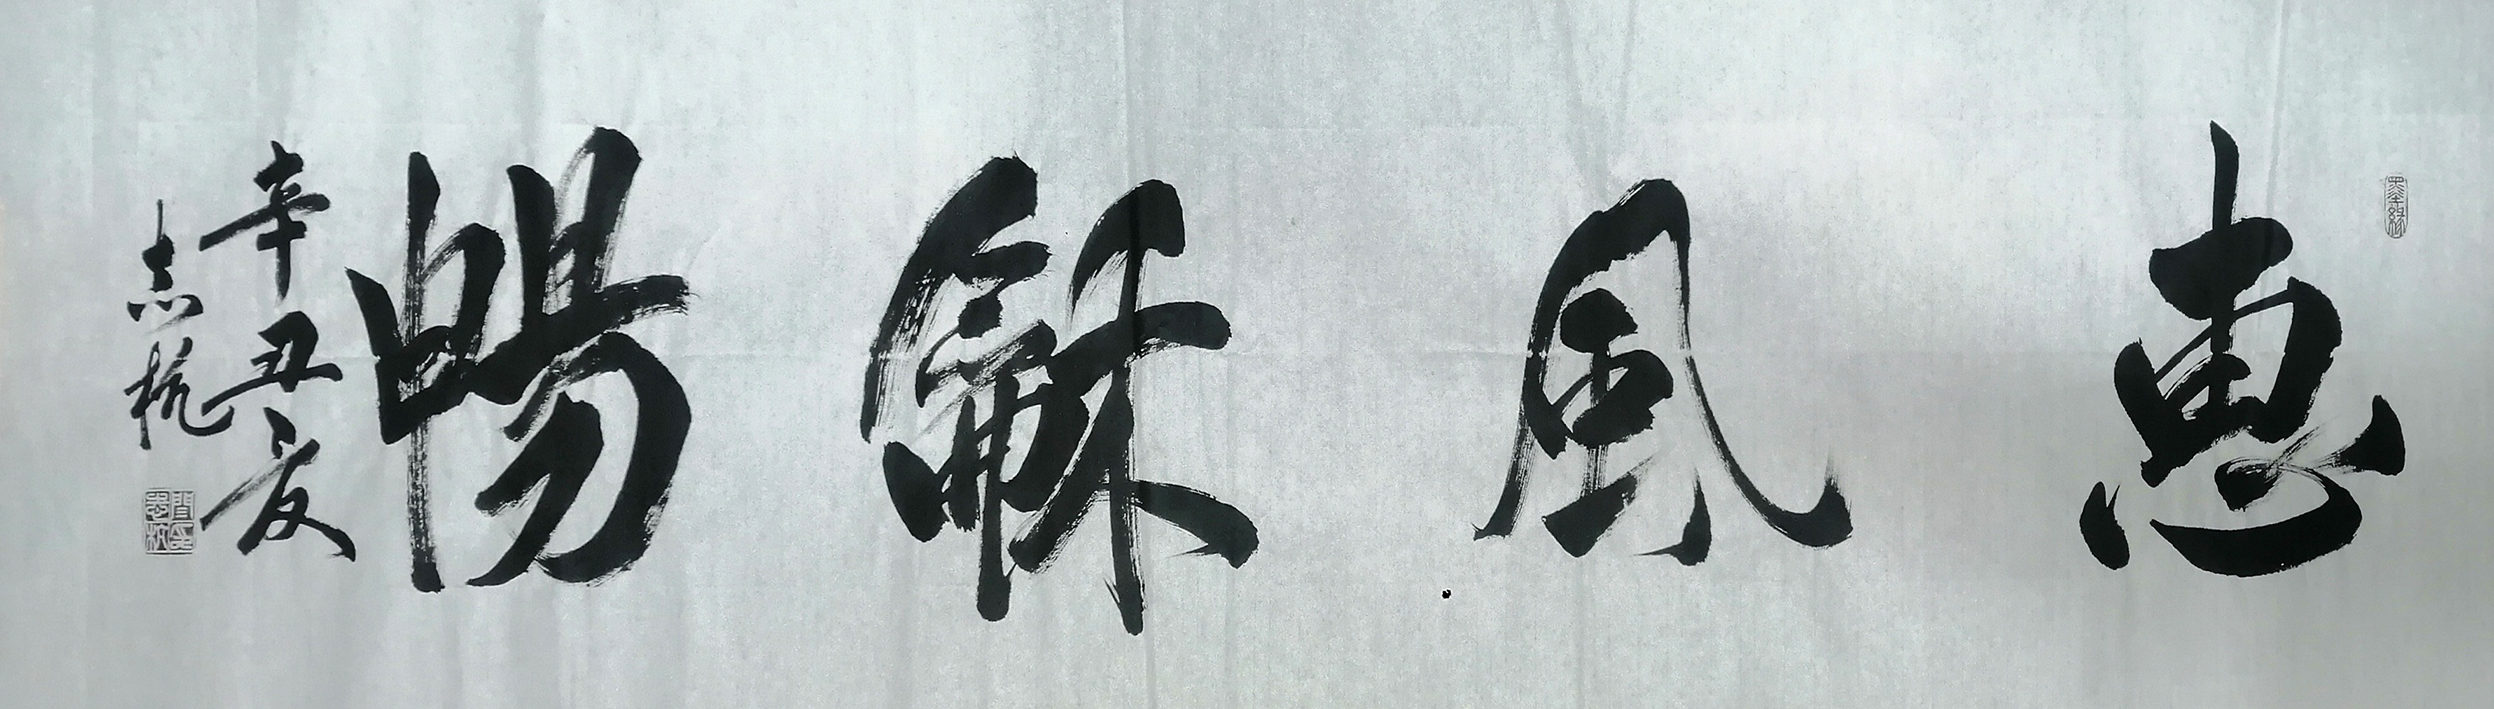 惠風龢暢
辛丑夏
志杭